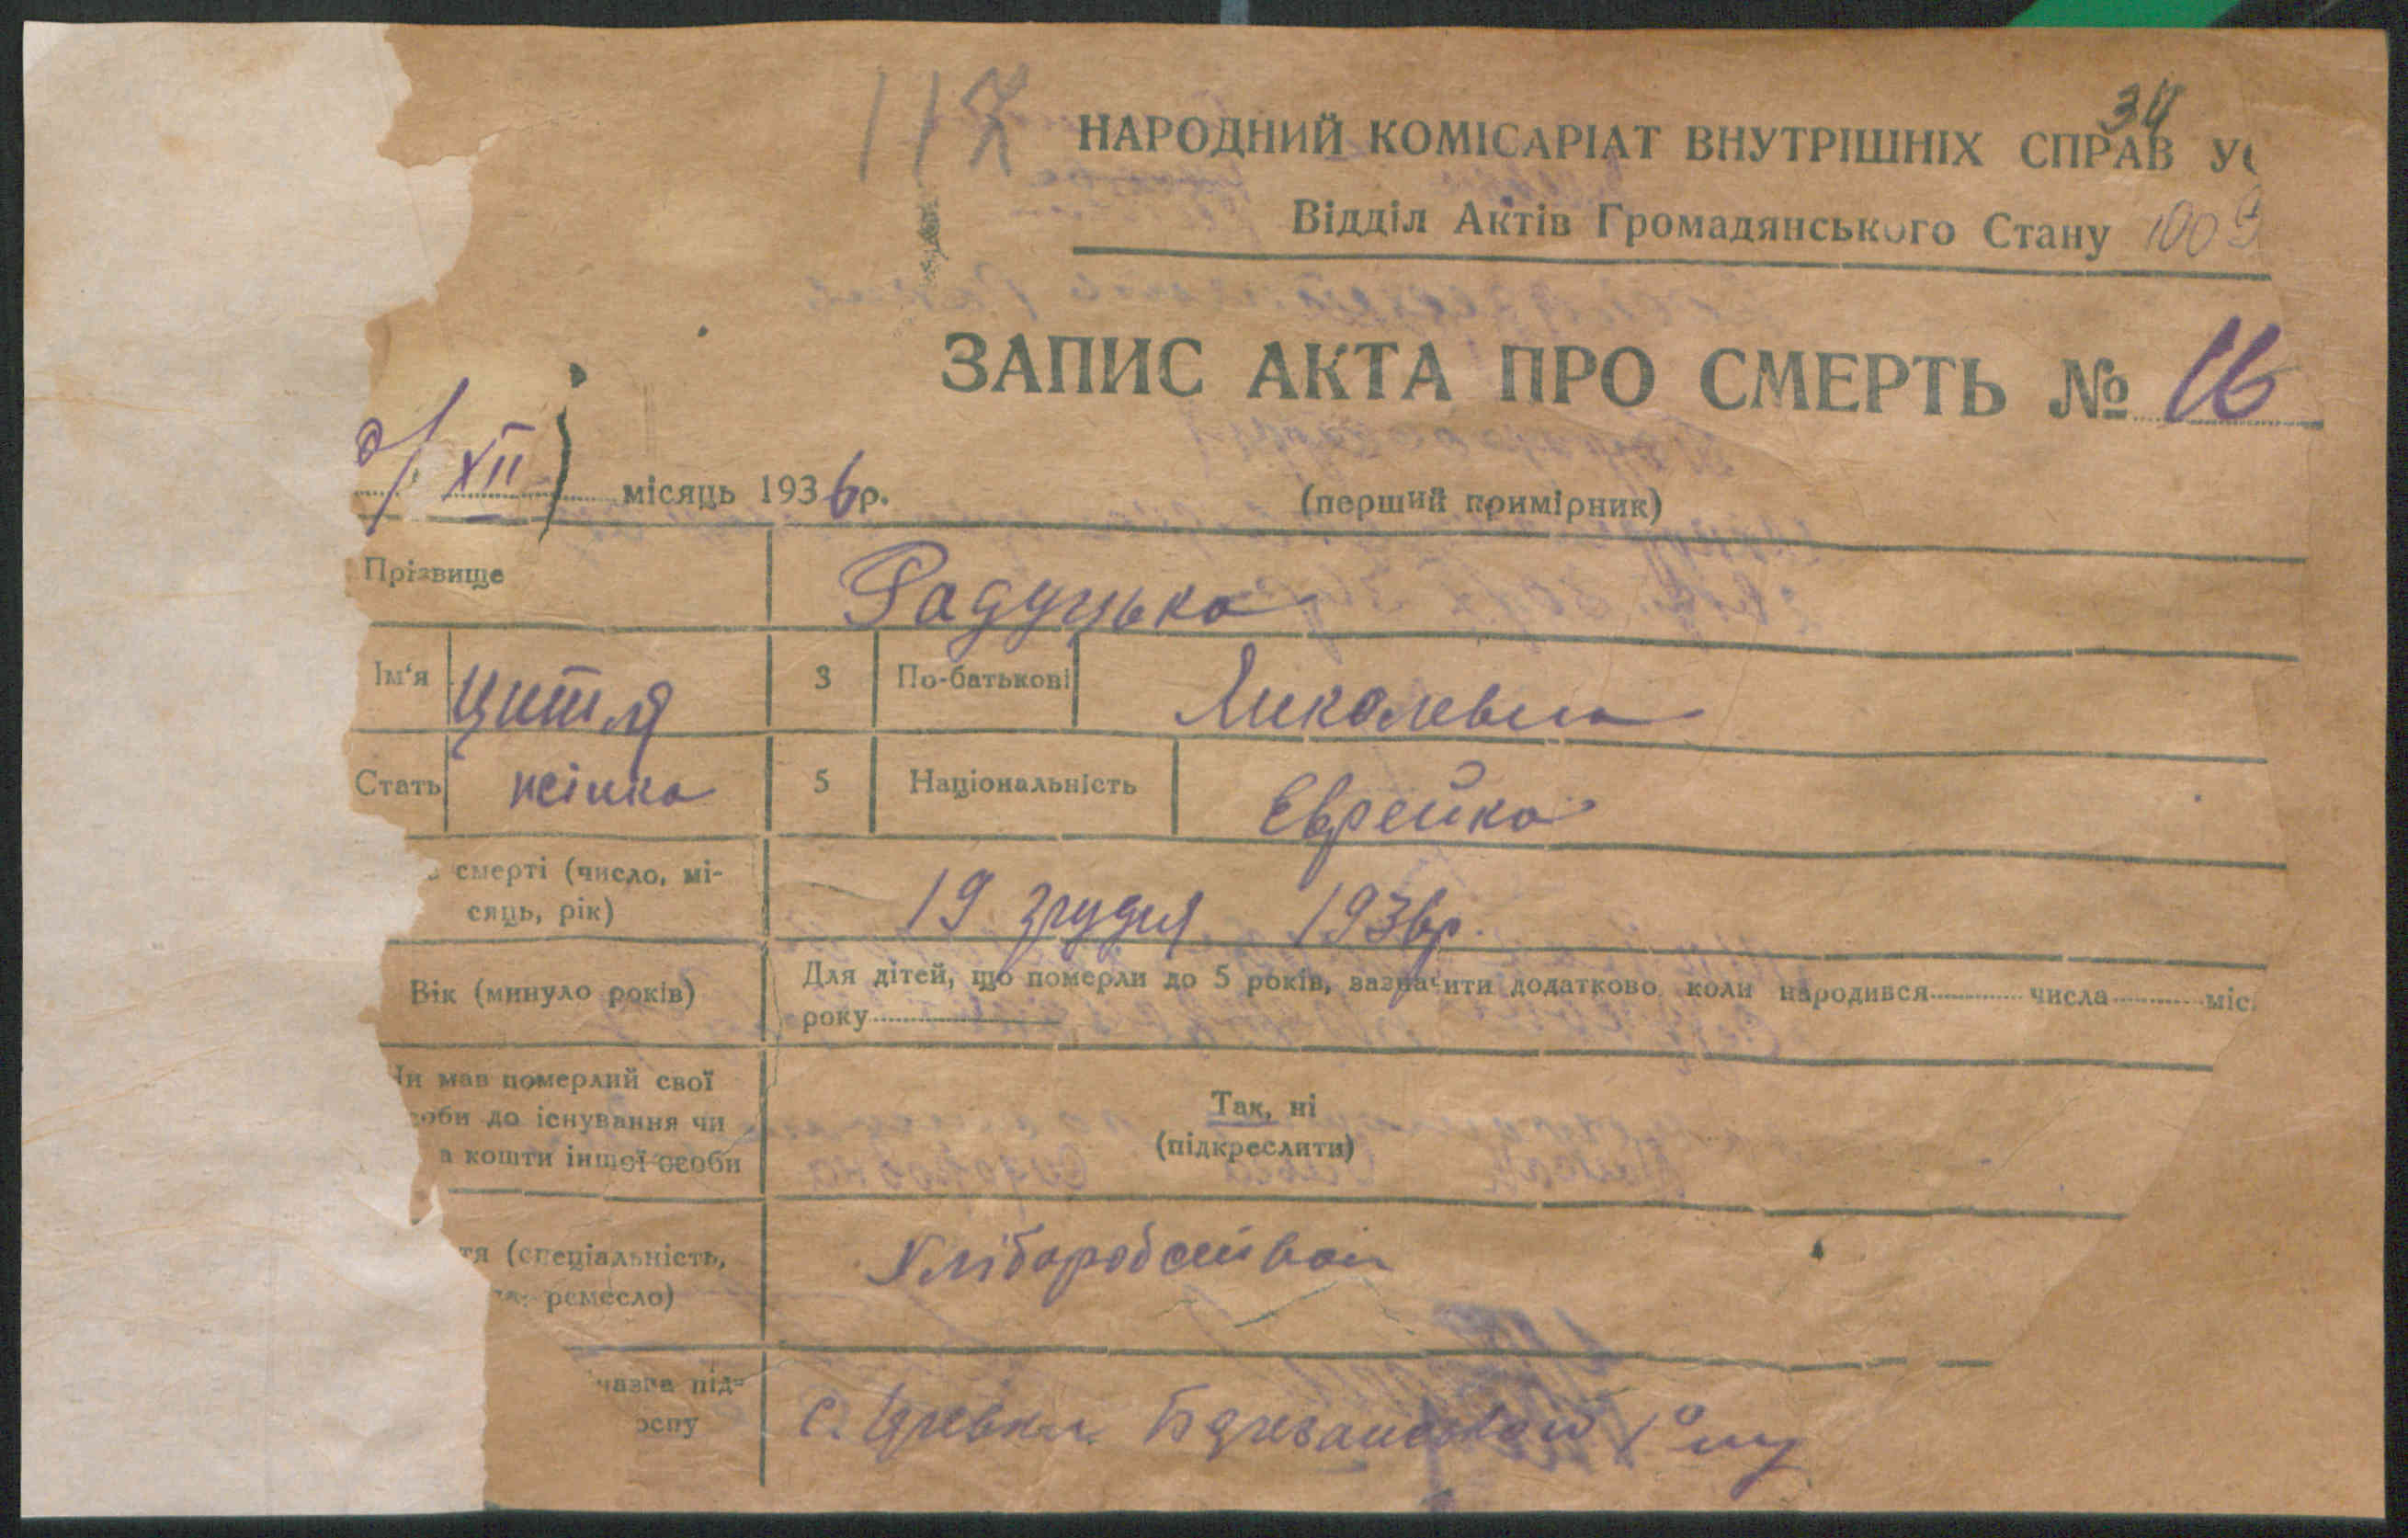 117
34
НАРОДНИЙ КОМІСАРІАТ ВНУТРІШНІХ СПРАВ
Відділ Актів Громадянського Стану 1009
ЗАПИС АКТА ПРО СМЕРТЬ № 16
XII місяць 1936 р. (перший примірник)
Прізвище Радуцька
Ім'я Цитля 3 По-батькові Миколевна
Стать жінка 5 Національність Єврейка
смерті (число, мі-
сяць, рік) 19 грудня 1936р.
Вік (минуло років) Для дітей, що померли до 5 років, зазначити додатково коли народився числа міс.
року
мав померлий свої
до існування чи Так, ні
кошти іншої особи (підкреслити)
(спеціальність,
ремесло)
під-
с.